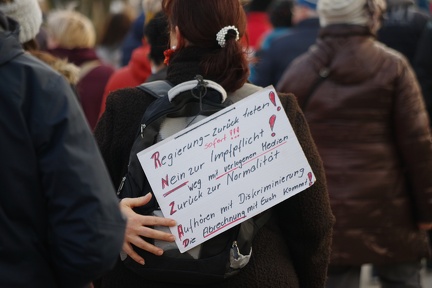 Regierung - zurück treten!
sofort!!!
Nein zur Impfpflicht!
weg mit verlogenen Medien
Zurück zur Normalität
Aufhören mit Diskriminierung
Die Abrechnung mit Euch Kommt!